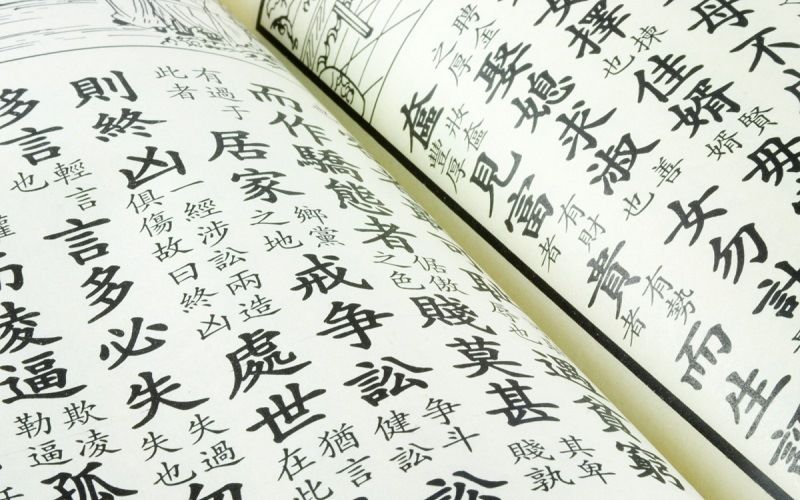 母不
女擇揀也佳婿賢婿毋
聘金之厚娶媳求淑善也女勿計
奩妝奩豐厚見富有財者貴有勢者而生
窮
而作驕態者倨傲之色賤莫甚其卑賤孰
有過于此者居家鄉黨之地戒爭訟爭斗健訟訟
則終凶一經涉訟兩造俱傷故曰終凶處世猶言在此
多言輕言也言多必失失過失也勿
而凌逼欺凌勒逼孤